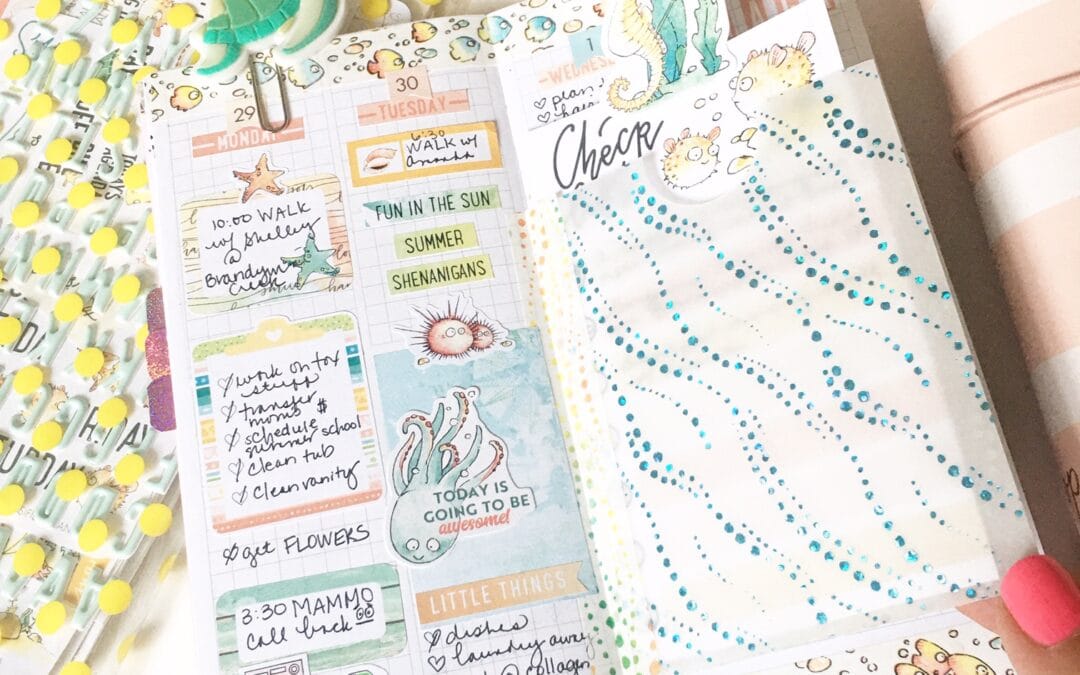 29
MONDAY
10:00 WALK
w/ Shelley
@
Brandywine
Creek
work on tax
stuff
transfer
moms $
schedule
summer school
clean tub
clean vanity
get FLOWERS
3:30 MAMMO
call back
30
TUESDAY
6:30
WALK w/
amanda
FUN IN THE SUN
SUMMER
SHENANIGANS
TODAY IS
GOING TO BE
awesome!
LITTLE THINGS
dishes
laundry away
collagen
1
WEDNES
plan
hair
Check